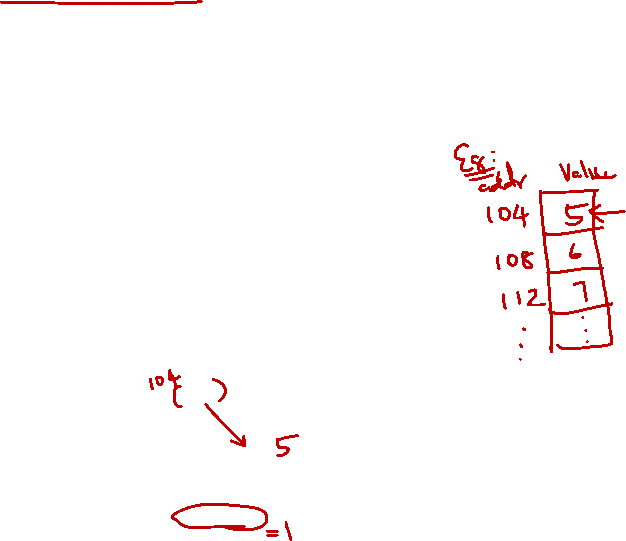 Eg:
addr Value
104 5
108 6
112 7
⋮ ⋮
104 ( )
5
= 1